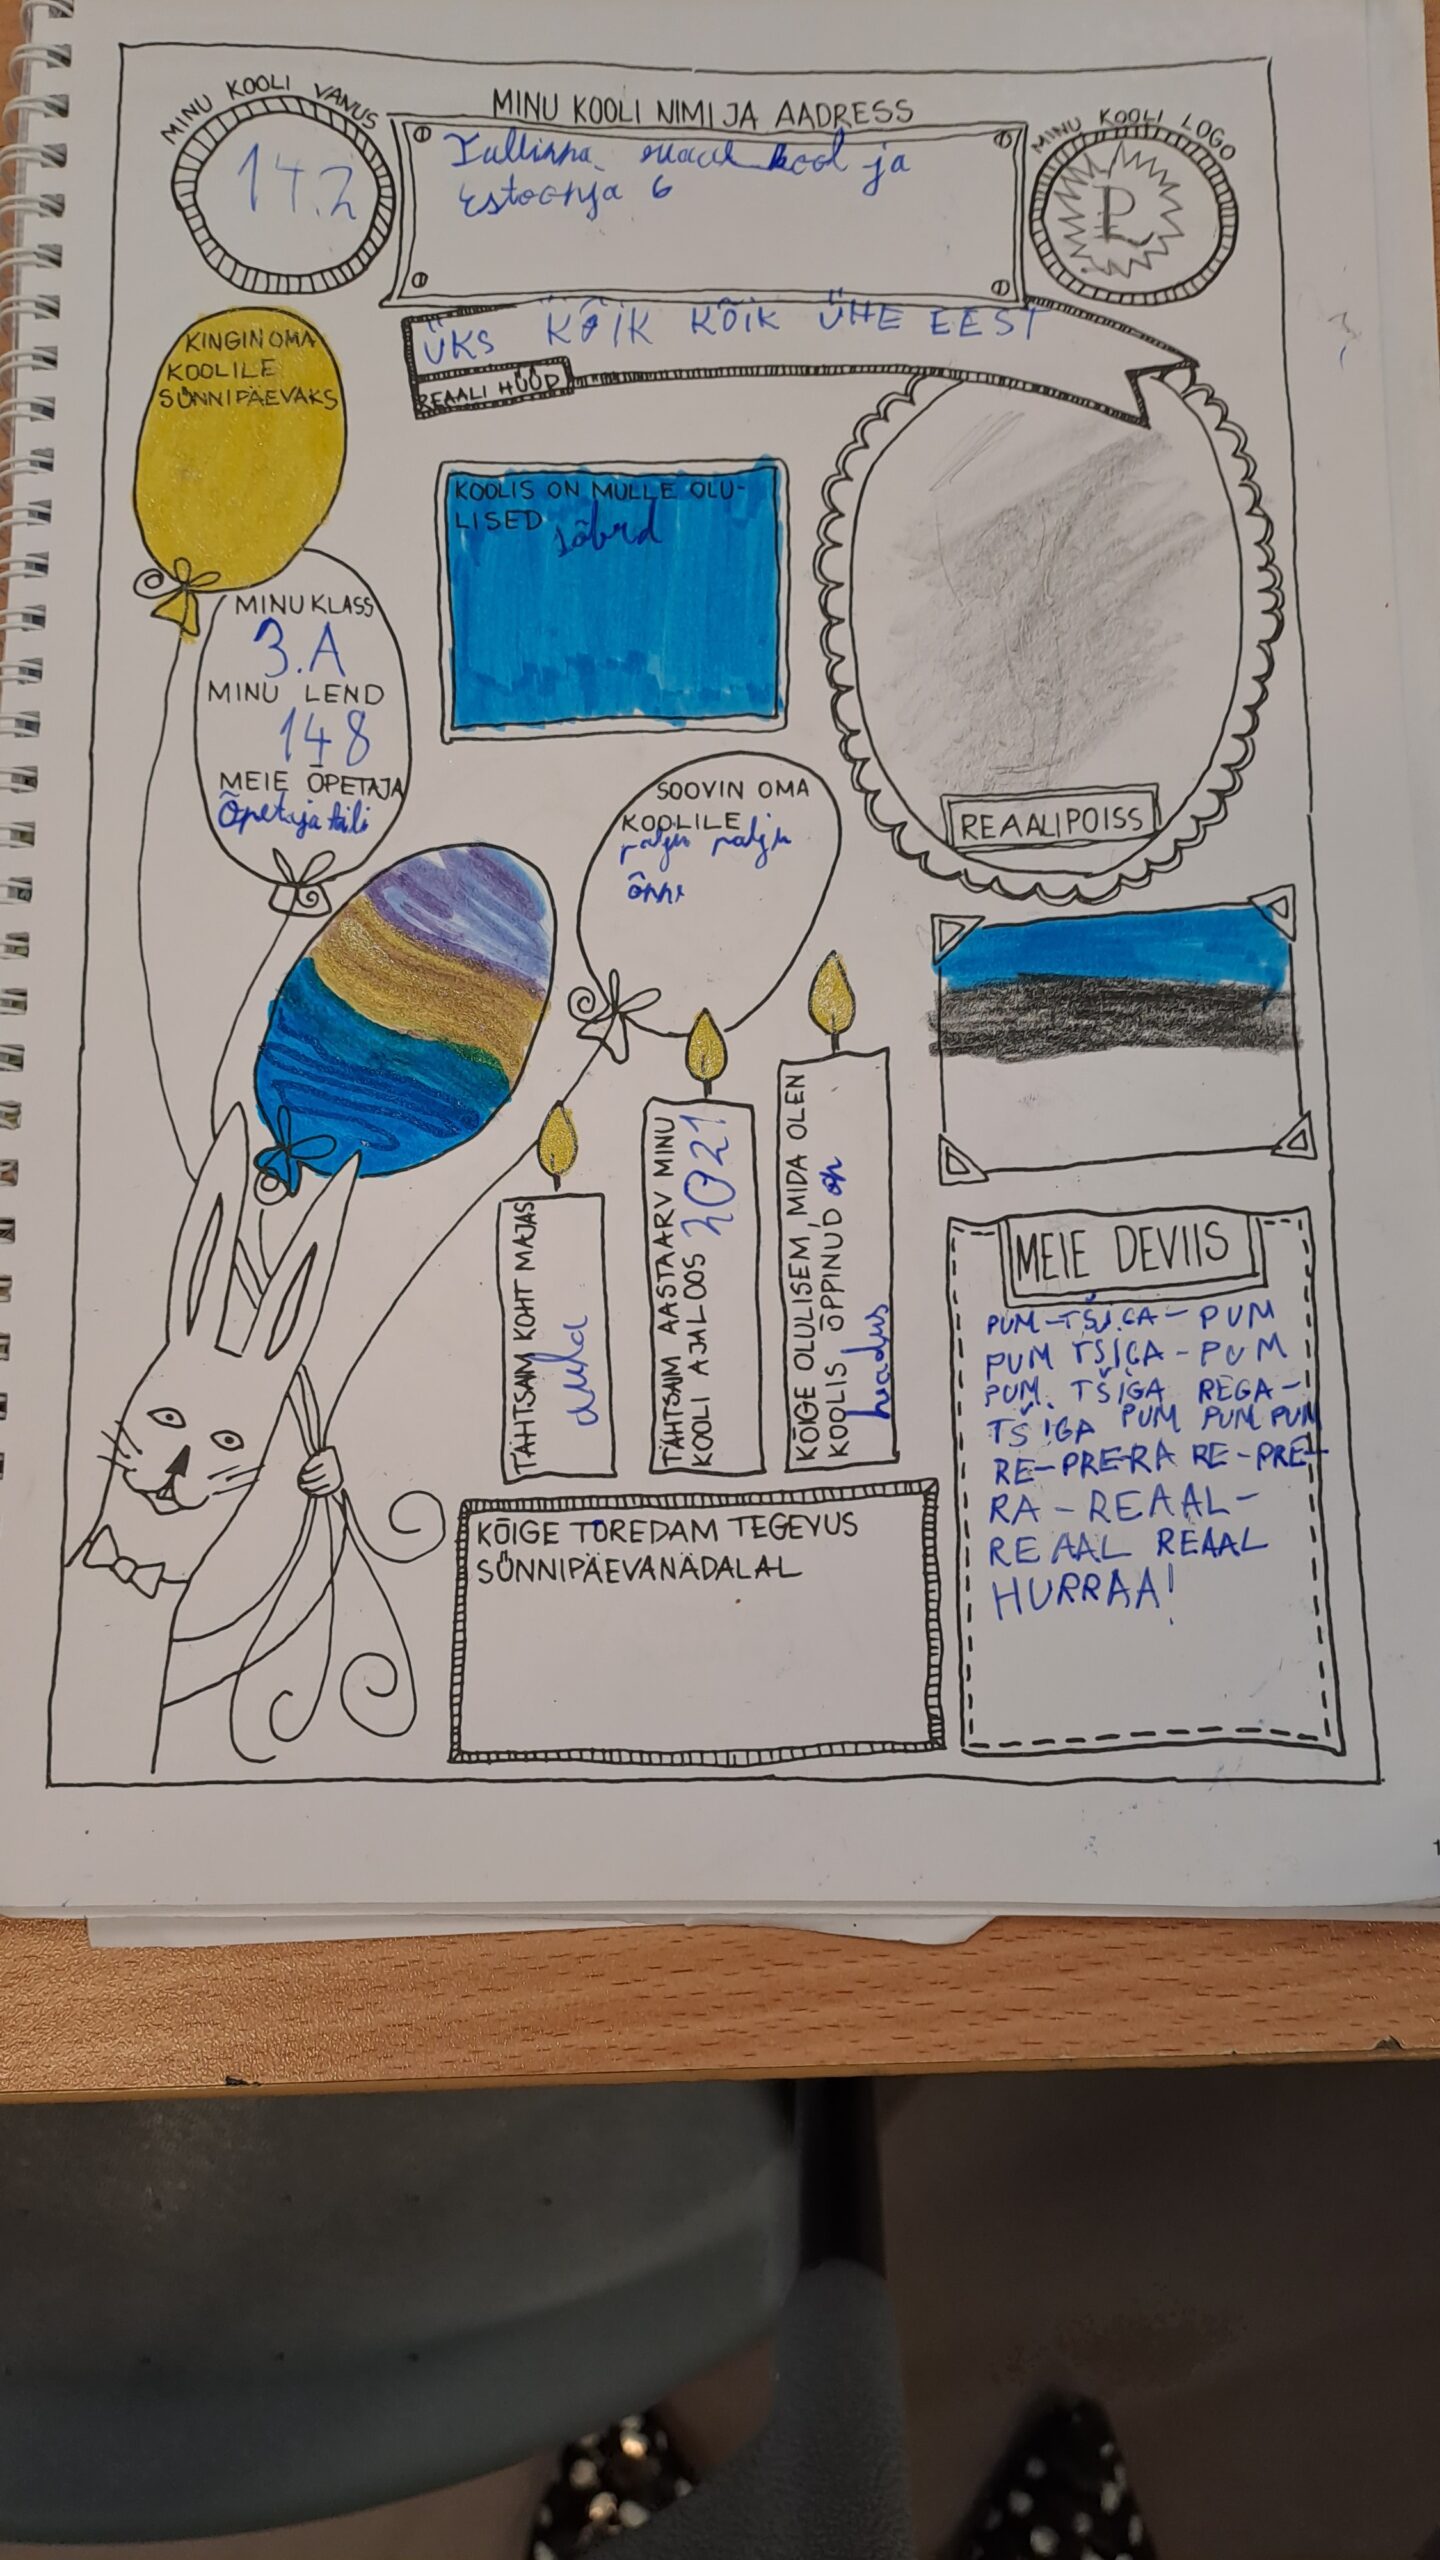 MINU KOOLI VANUS
142
MINU KOOLI NIMI JA AADRESS
Tallinna reaal kool ja
Estoonja 6
MINU KOOLI LOGO
R
ÜKS KÕIK KÕIK ÜHE EEST
REAALI HÜÜD
KINGIN OMA
KOOLILE
SÜNNIPÄEVAKS
KOOLIS ON MULLE OLU-
LISED sõbrd
MINU KLASS
3.A
MINU LEND
148
MEIE ÕPETAJA
Õpetaja
SOOVIN OMA
KOOLILE
palju palju
õnne
REAALIPOISS
TÄHTSAIM KOHT MAJAS
TÄHTSAIM AASTAARV MINU
KOOLI AJALOOS 2021
KÕIGE OLULISEM, MIDA OLEN
KOOLIS ÕPPINUD on
headus
MEIE DEVIIS
PUM-TŠIGA-PUM
PUM TŠIGA-PUM
PUM TŠIGA REGA-
TŠIGA PUM PUM PUM
RE-PRE-RA RE-PRE-
RA-REAAL-
REAAL REAAL
HURRAA!
KÕIGE TOREDAM TEGEVUS
SÜNNIPÄEVANÄDALAL